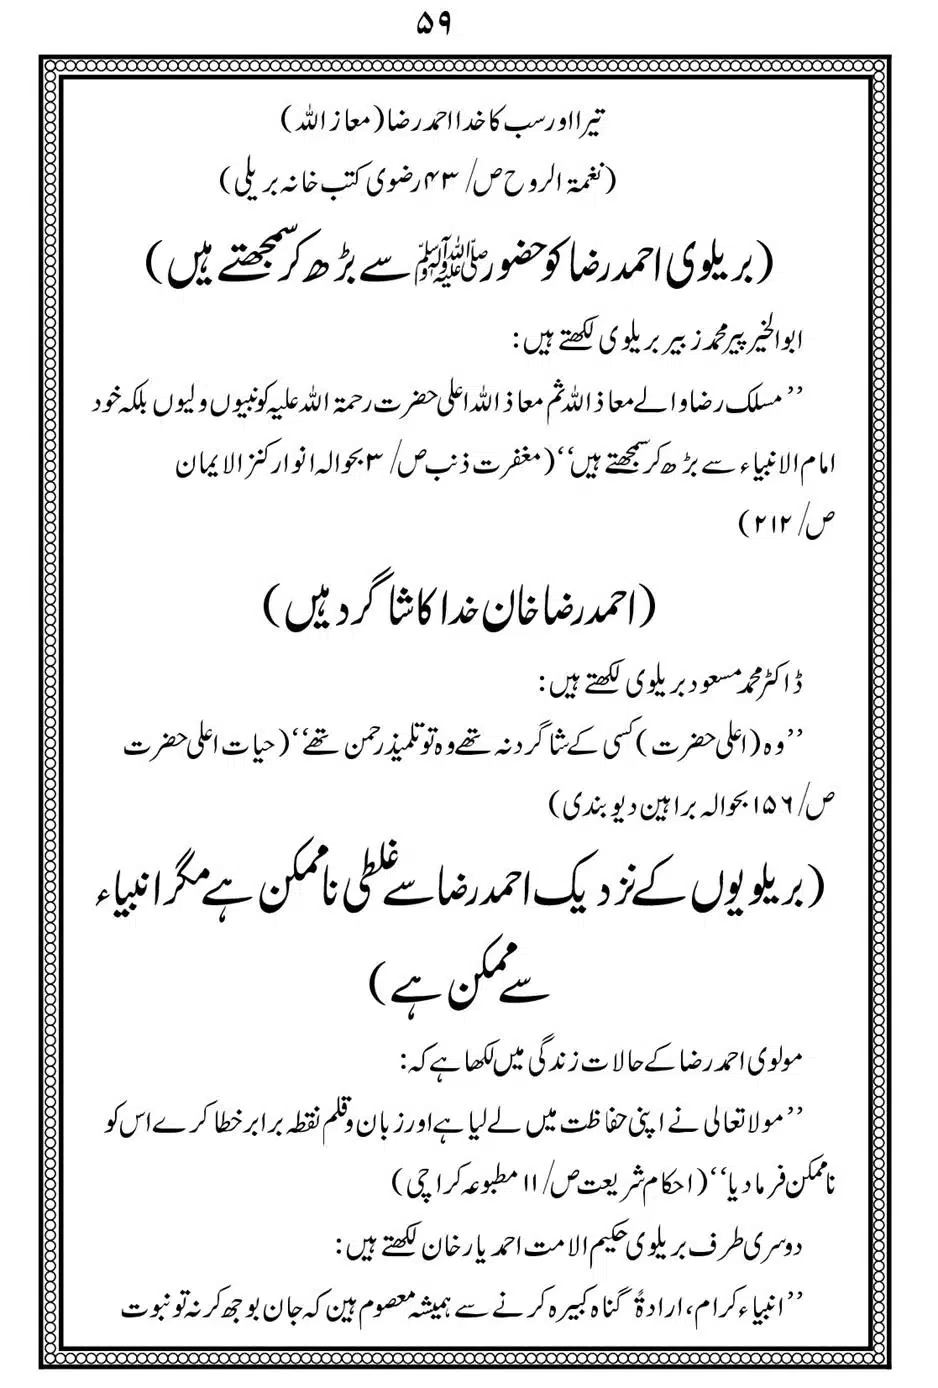 ۵۹
تیرا اور سب کا خدا احمد رضا (معاز اللہ)
(نغمۃ الروح ص/ ۴۳ رضوی کتب خانہ بریلی)
(بریلوی احمد رضا کو حضور ﷺ سے بڑھ کر سمجھتے ہیں)
ابوالخیر پیر محمد زبیر بریلوی لکھتے ہیں:
’’مسلک رضا والے معاذ اللہ ثم معاذ اللہ اعلی حضرت رحمۃ اللہ علیہ کو نبیوں ولیوں بلکہ خود
امام الانبیاء سے بڑھ کر سمجھتے ہیں‘‘ (مغفرت ذنب ص/ ۳ بحوالہ انوار کنز الایمان
ص/ ۲۱۲)
(احمد رضا خان خدا کا شاگرد ہیں)
ڈاکٹر محمد مسعود بریلوی لکھتے ہیں:
’’وہ (اعلی حضرت) کسی کے شاگرد نہ تھے وہ تو تلمیذ رحمن تھے‘‘ (حیات اعلی حضرت
ص/ ۱۵۶ بحوالہ براہین دیوبندی)
(بریلویوں کے نزدیک احمد رضا سے غلطی ناممکن ہے مگر انبیاء
سے ممکن ہے)
مولوی احمد رضا کے حالات زندگی میں لکھا ہے کہ:
’’مولا تعالی نے اپنی حفاظت میں لے لیا ہے اور زبان و قلم نقطہ برابر خطا کرے اس کو
ناممکن فرما دیا‘‘ (احکام شریعت ص/ ۱۱ مطبوعہ کراچی)
دوسری طرف بریلوی حکیم الامت احمد یار خان لکھتے ہیں:
’’انبیاء کرام، ارادۃً گناہ کبیرہ کرنے سے ہمیشہ معصوم ہین کہ جان بوجھ کر نہ تو نبوت